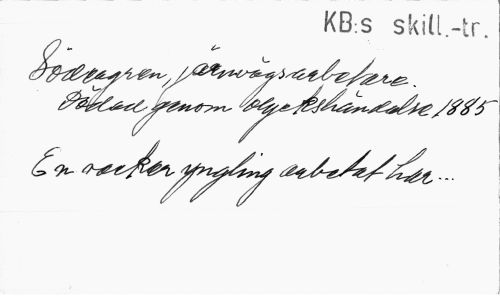 KB:s skill.-tr.
Södergren, järnvägsarbetare.
Dödad genom olyckshändelse 1885
En vacker yngling arbetat har...